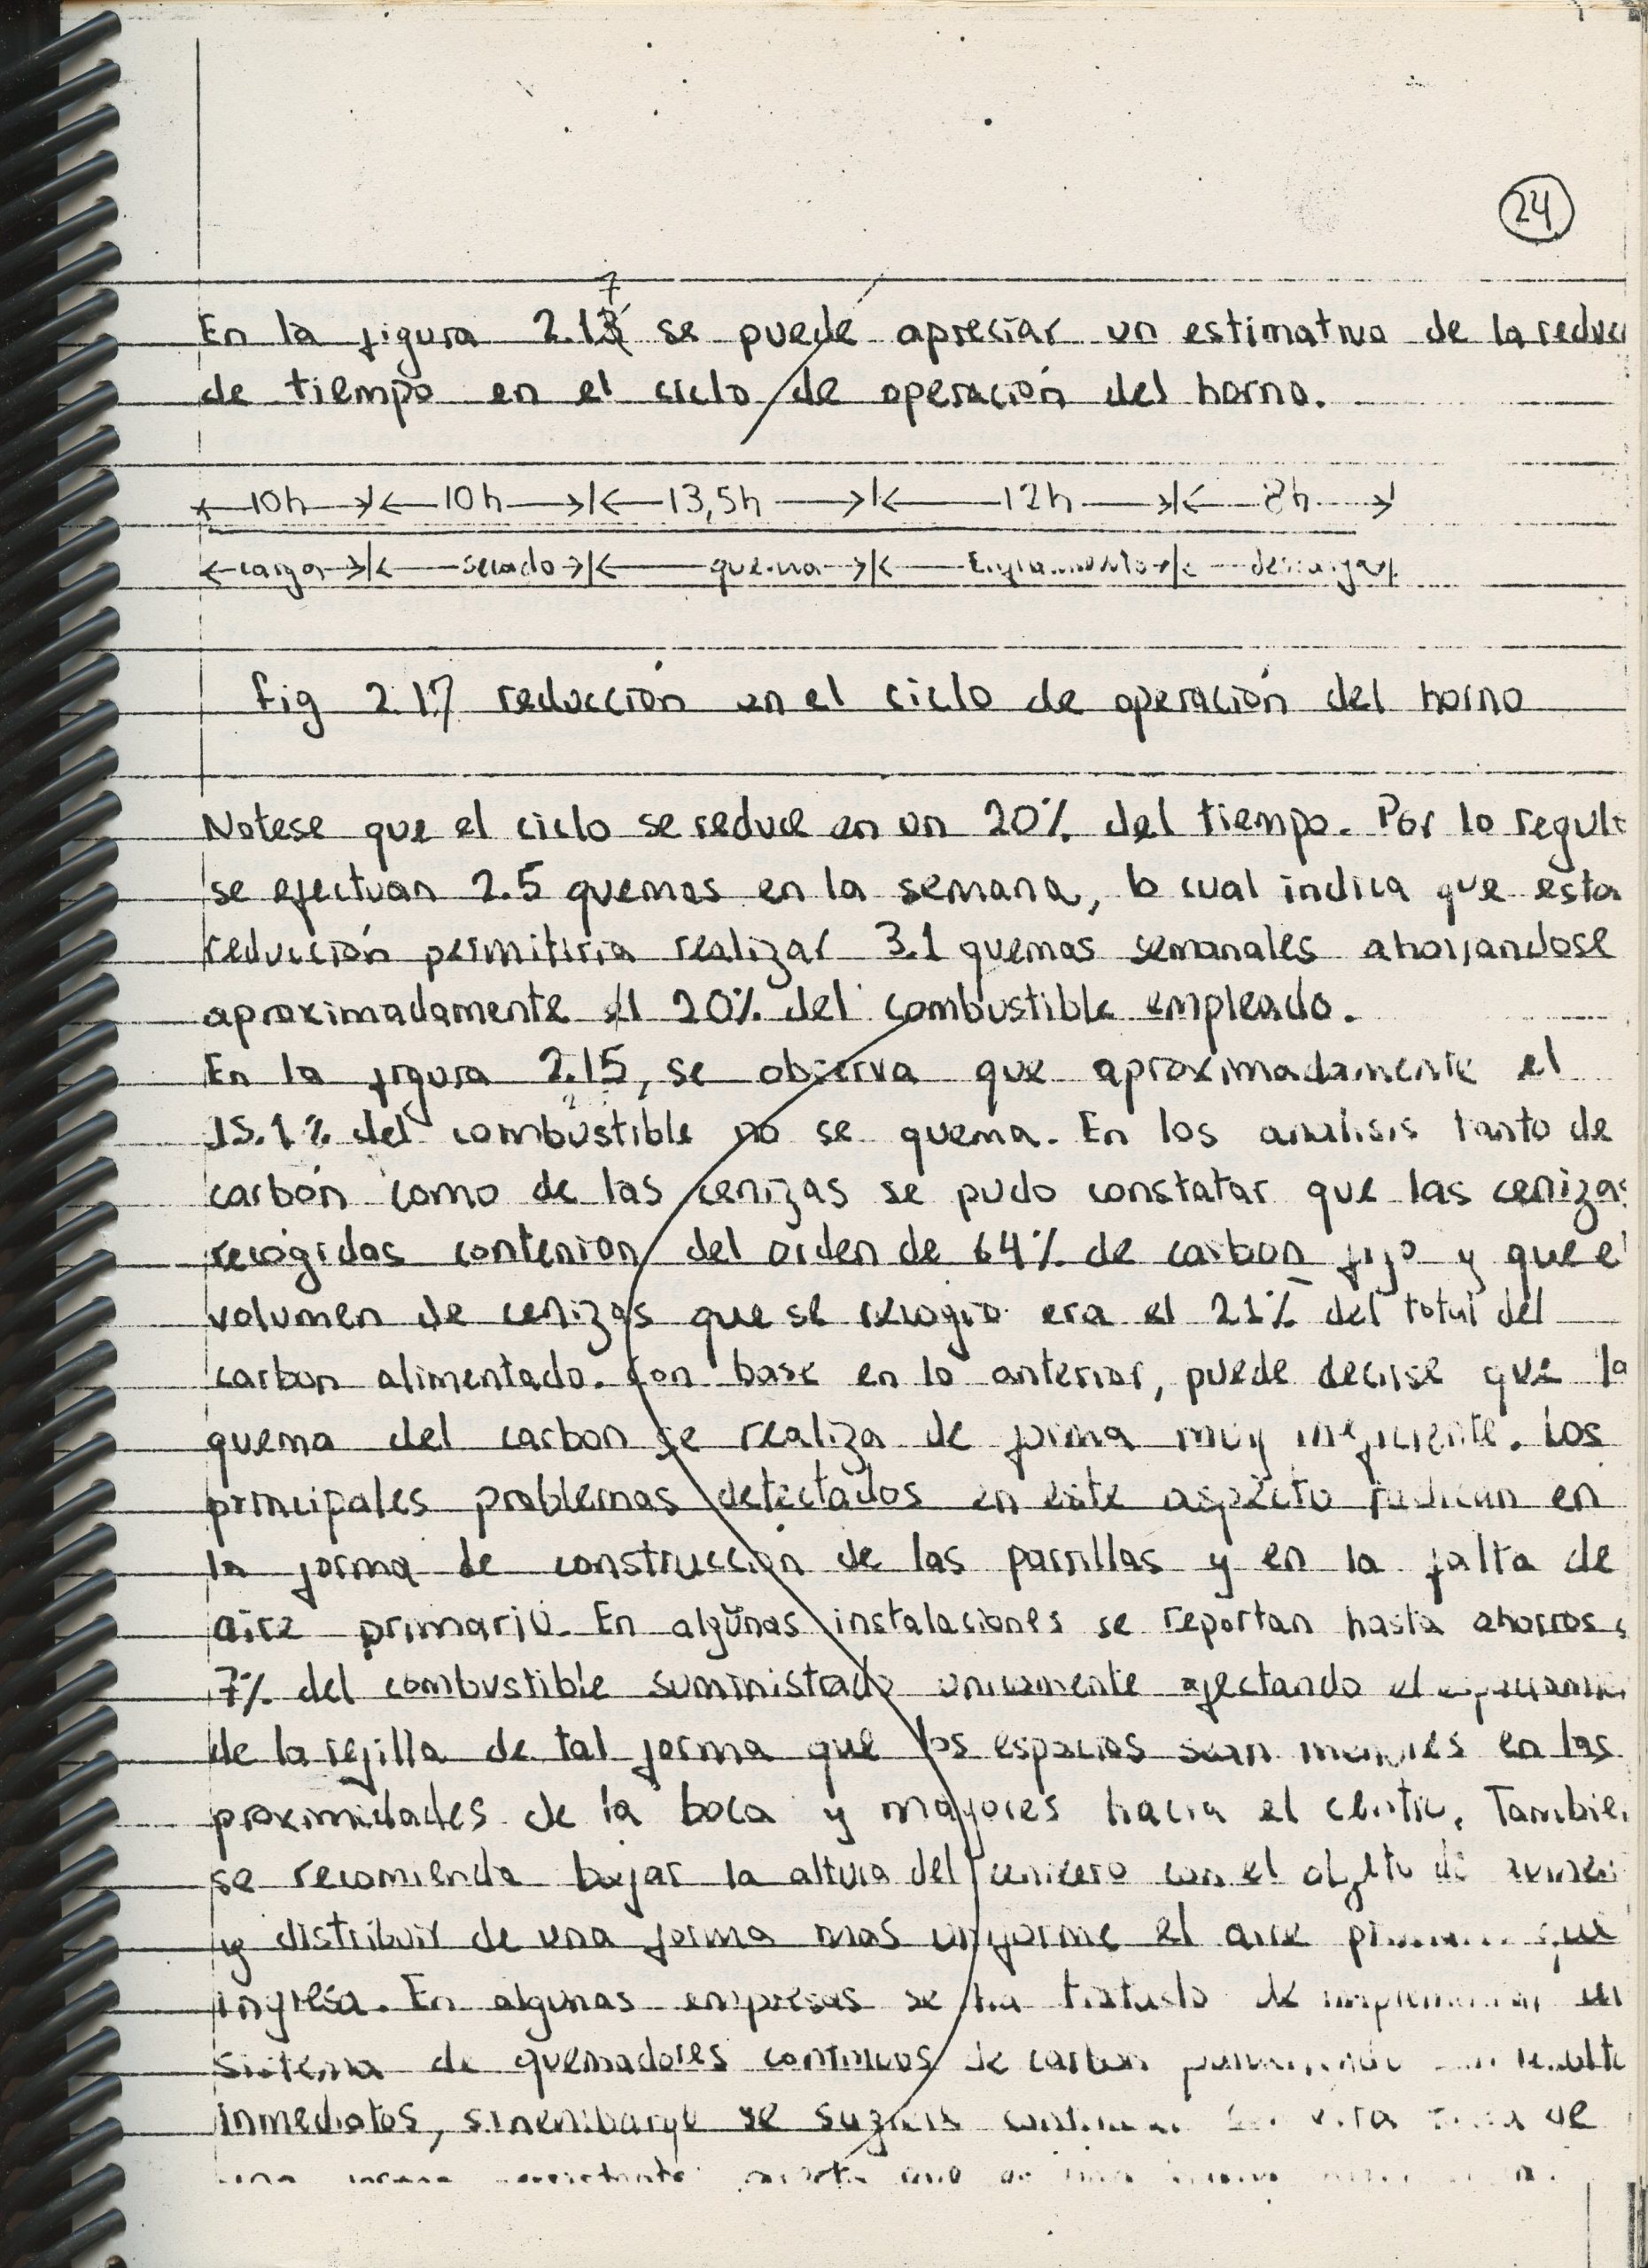 24
En la figura 2.17 se puede apreciar un estimativo de la reduc
de tiempo en el ciclo de operación del horno.
10h 10h 13,5h 12h 8h
carga secado quema Enfriamiento descarga
fig 2.17 reducción en el ciclo de operación del horno
Notese que el ciclo se reduce en un 20% del tiempo. Por lo regula
se efectuan 2.5 quemas en la semana, lo cual indica que esta
reducción permitiria realizar 3.1 quemas semanales ahorrandose
aproximadamente el 20% del combustible empleado.
En la figura 2.15, se observa que aproximadamente el
15.1% del combustible no se quema. En los analisis tanto de
carbón como de las cenizas se pudo constatar que las cenizas
recogidas contenian del orden de 64% de carbon fijo y que el
volumen de cenizas que se recogio era el 21% del total del
carbon alimentado. Con base en lo anterior, puede decirse que la
quema del carbon se realiza de forma muy ineficiente. Los
principales problemas detectados en este aspecto radican en
la forma de construccion de las parrillas y en la falta de
aire primario. En algunas instalaciones se reportan hasta ahorros
7% del combustible suministrado unicamente afectando el
de la rejilla de tal forma que los espacios sean menores en las
proximidades de la boca y mayores hacia el centro. Tambie
se recomienda bajar la altura del cenicero con el objeto de
y distribuir de una forma mas uniforme el aire que
ingresa. En algunas empresas se ha tratado de implementar un
sistema de quemadores continuos de carbon
inmediatos, sinembargo se de